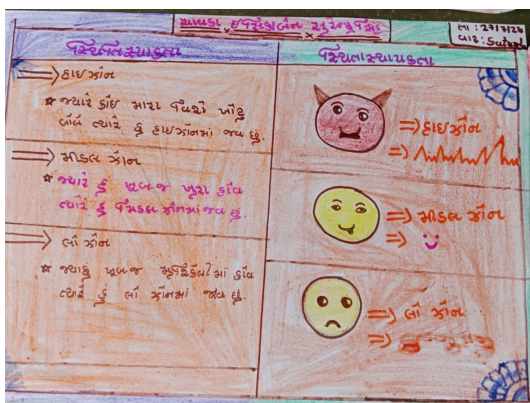 તા : 27/7/24
સ્થિતિસ્થાપકતા
⇒ હાઇ ઝોન
★ જ્યારે કોઇ મારા વિશે ખોટુ
બોલે ત્યારે હું હાઇઝોનમાં જાવ છું.
⇒ મીડલ ઝોન
★ જ્યારે હું ખૂબ જ ખુશ હોવ
ત્યારે હું મિડલ ઝોનમાં જાવ છું.
⇒ લો ઝોન
★ જ્યારે હું ખૂબ જ મુશ્કેલીમાં હોવ
ત્યારે હું લો ઝોનમાં જાવ છું.
સ્થિતિસ્થાપકતા
⇒ હાઇઝોન
⇒ મીડલ ઝોન
⇒ લો ઝોન